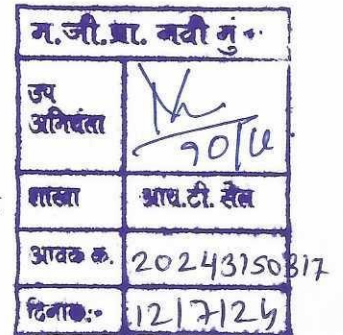 म.जी.प्रा. नवी मुं.
उप
अभियंता
शाखा आय.टी. सेल
आवक क्र. 20243150317
दिनांक:- 12/7/24